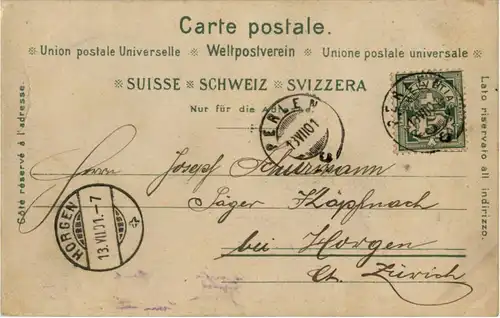 Carte postale.
※ Union postale Universelle ※ Weltpostverein ※ Unione postale universale ※
※ SUISSE ※ SCHWEIZ ※ SVIZZERA
Nur für die Adresse.
Côté réservé à l'adresse.
Lato riservato all indirizzo.
PERLEN
13.VII.01
PERLEN
HELVETIA
HORGEN
13.VII.01.-7
Herrn Josef Schurmann
Jäger Käpfnach
bei Horgen
Ct. Zürich